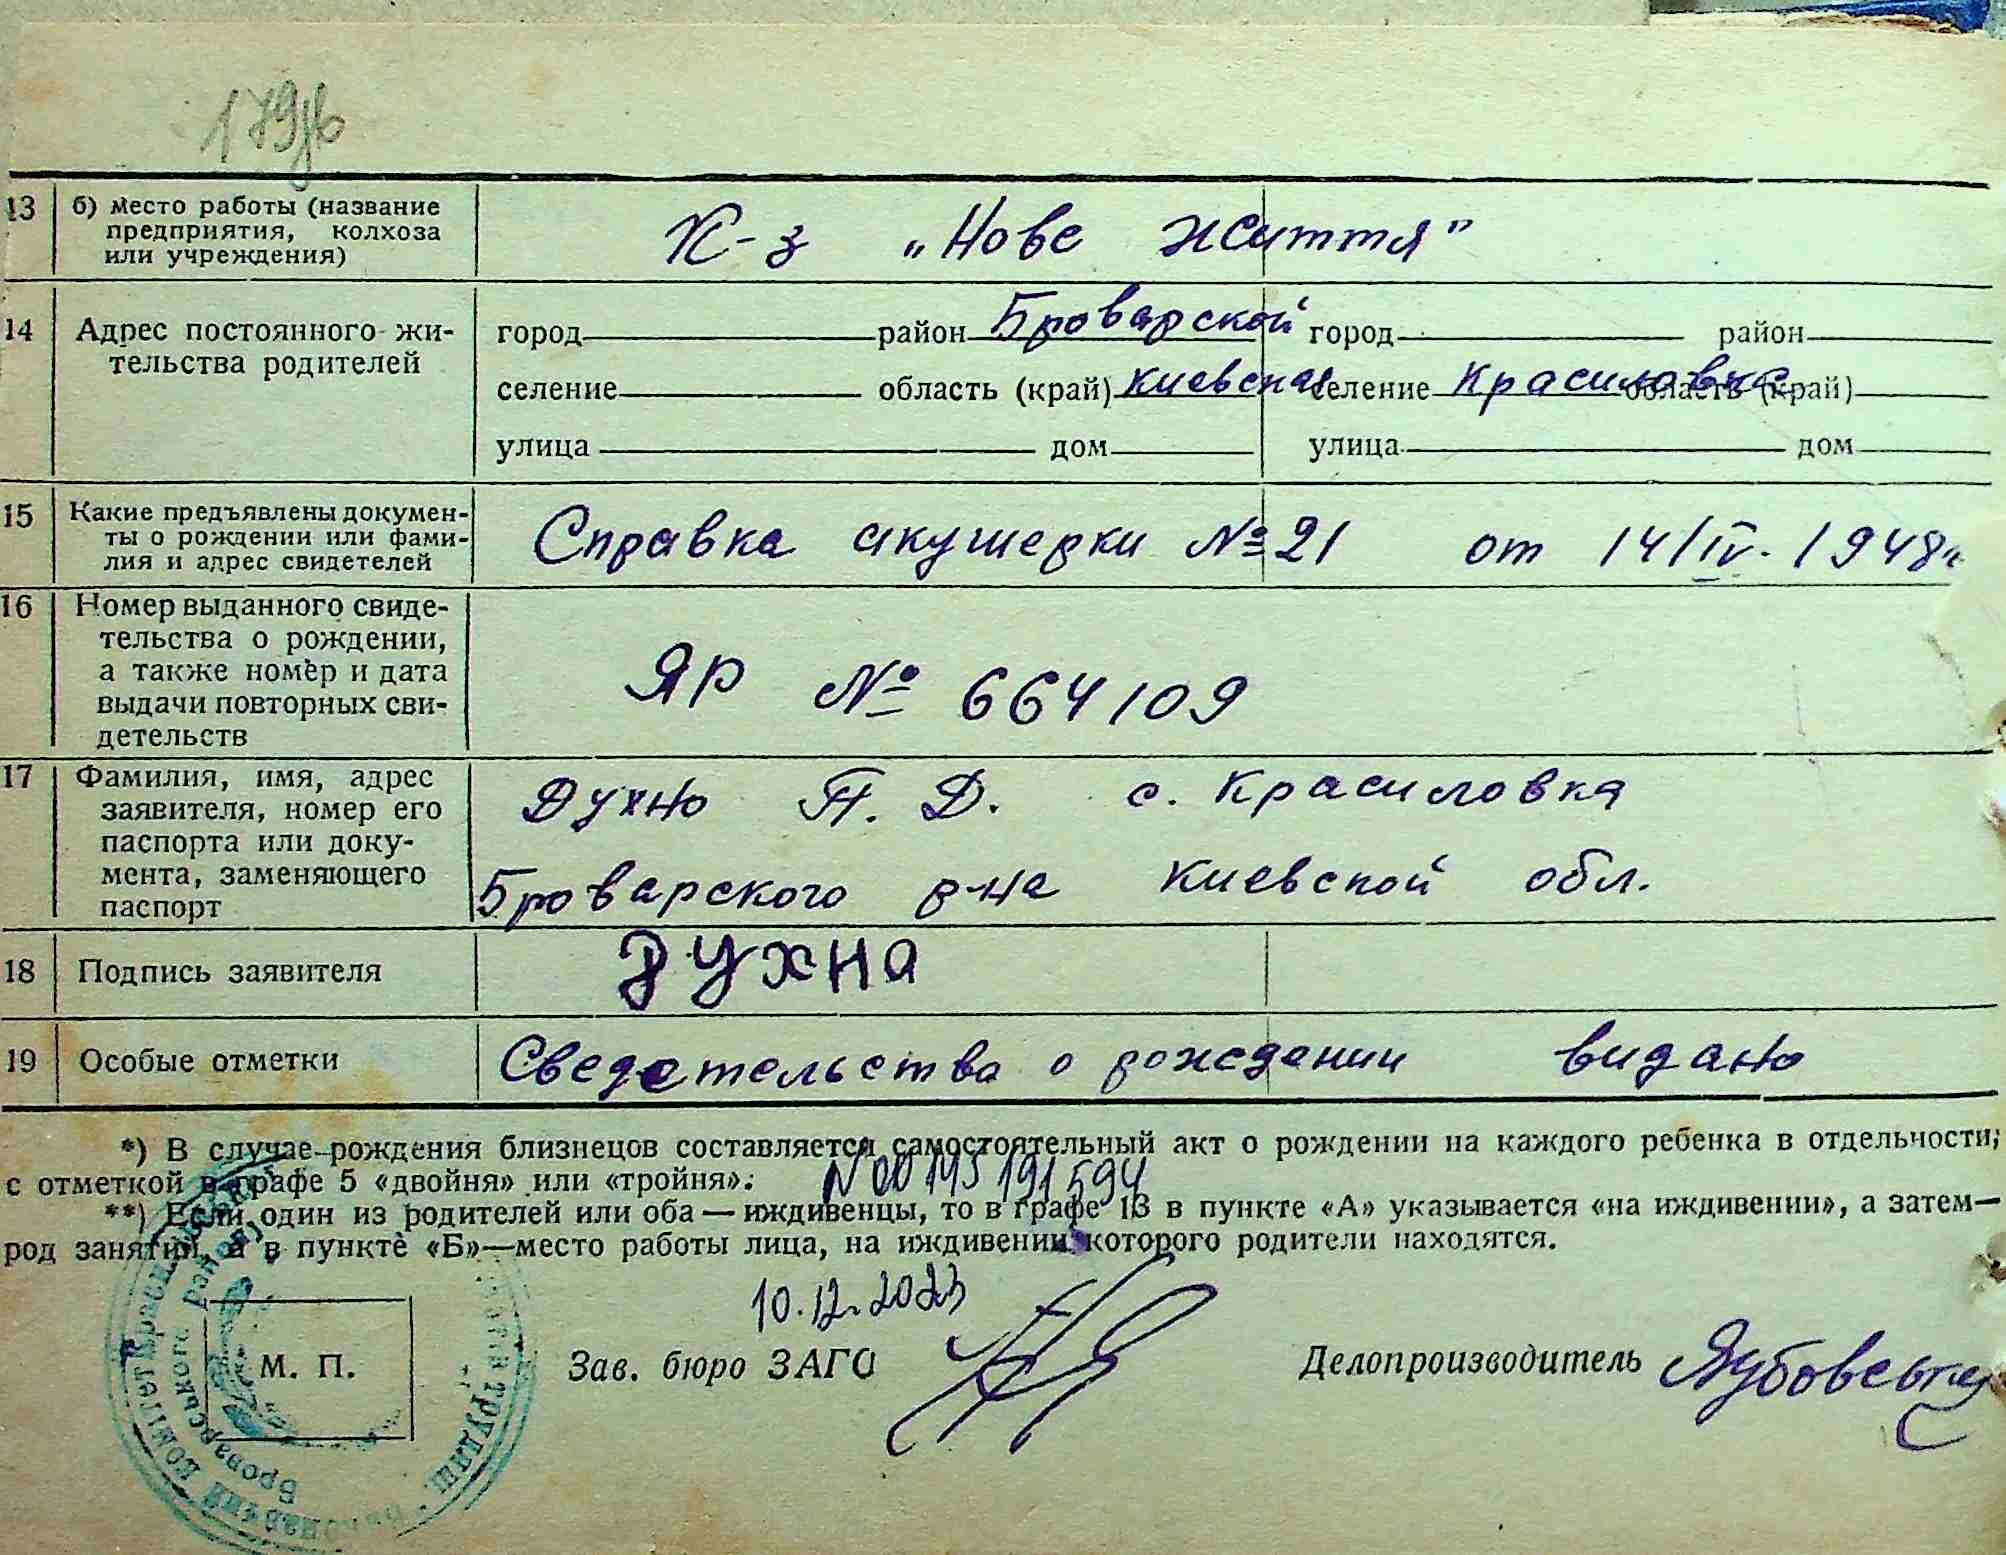 179
13 б) Место работы (название
предприятия, колхоза
или учреждения)
К-з „Нове життя"
14 Адрес постоянного жи-
тельства родителей
город район Броварской город район
селение область (край) Киевская селение Красиловка область (край)
улица дом улица дом
15 Какие предъявлены докумен-
ты о рождении или фами-
лия и адрес свидетелей
Справка акушерки № 21 от 14/IV. 1948г.
16 Номер выданного свиде-
тельства о рождении,
а также номер и дата
выдачи повторных сви-
детельств
ЯР № 664109
17 Фамилия, имя, адрес
заявителя, номер его
паспорта или доку-
мента, заменяющего
паспорт
Духно Т. Д. с. Красиловка
Броварского р-на Киевской обл.
18 Подпись заявителя
Духна
19 Особые отметки
Сведетельства о рождении видано
*) В случае рождения близнецов составляется самостоятельный акт о рождении на каждого ребенка в отдельности,
с отметкой в графе 5 «двойня» или «тройня».
N00145191594
**) Если один из родителей или оба — иждивенцы, то в графе 13 в пункте «А» указывается «на иждивении», а затем—
род занятий, а в пункте «Б»—место работы лица, на иждивении которого родители находятся.
10.12.2023
М. П. Зав. бюро ЗАГС Делопроизводитель Якубовська